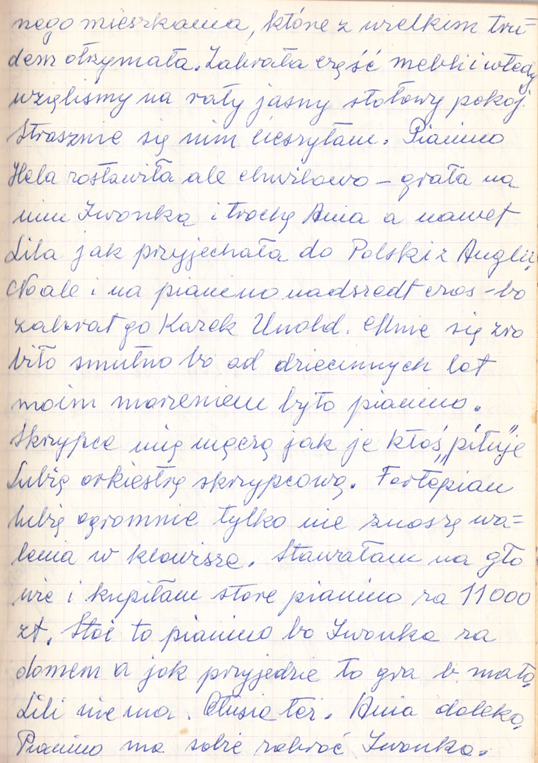 nego mieszkania, które z wielkim tru=
dem otrzymała. Zabrała część mebli i wtedy
wzięliśmy na raty jasny stołowy pokój.
Strasznie się nim cieszyłam. Pianino
Hela zostawiła ale chwilowo – grała na
nim Iwonka i trochę Ania a nawet
Lila jak przyjechała do Polski z Anglii,
No ale i na pianino nadszedł czas – bo
zabrał go Karek Unold. Mnie się zro
biło smutno bo od dziecinnych lat
moim marzeniem było pianino.
Skrzypce mię męczą jak je ktoś „piłuje"
Lubię orkiestrę skrzypcową. Fortepian
lubię ogromnie tylko nie znoszę wa=
lenia w klawisze. Stawałam na gło
wie i kupiłam stare pianino za 11000
zł. Stoi to pianino bo Iwonka za
domem a jak przyjedzie to gra b. mało,
Lili nie ma. też. Ania daleko,
Pianino ma sobie zabrać Iwonka.